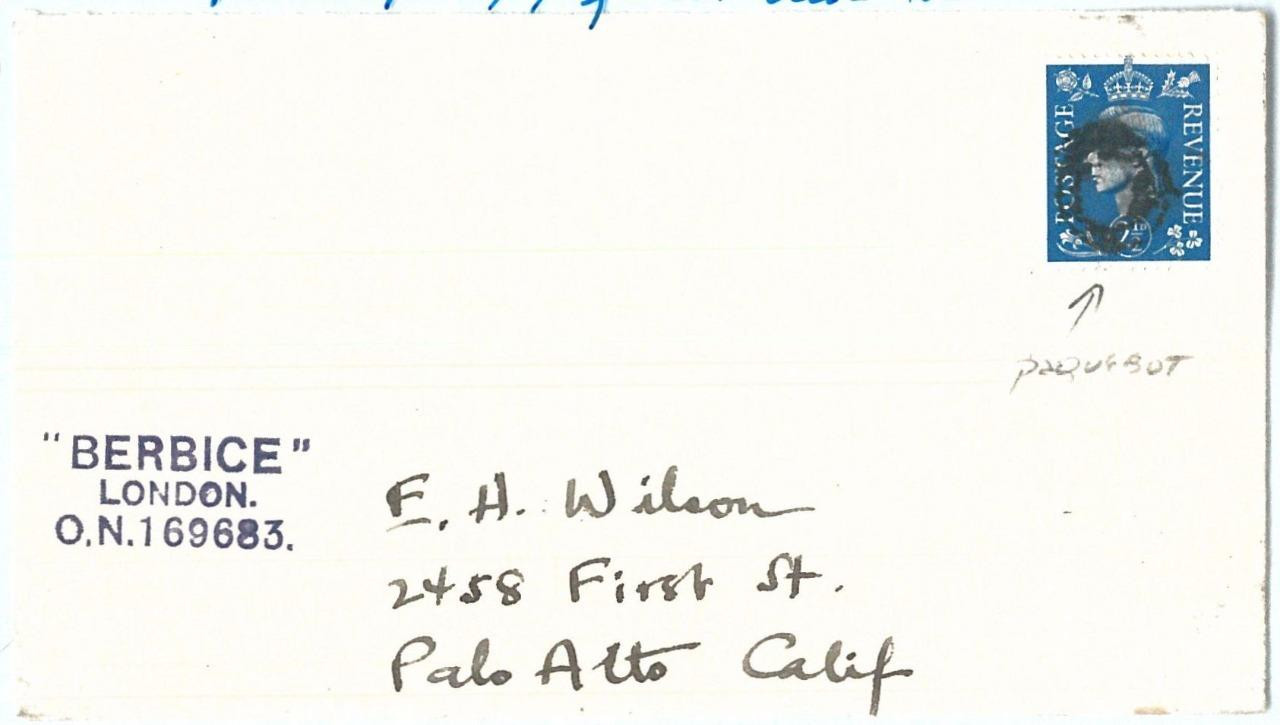 POSTAGE
REVENUE
2½D
PAQUEBOT
"BERBICE"
LONDON.
O.N.169683.
E. H. Wilson
2458 First St.
Palo Alto Calif